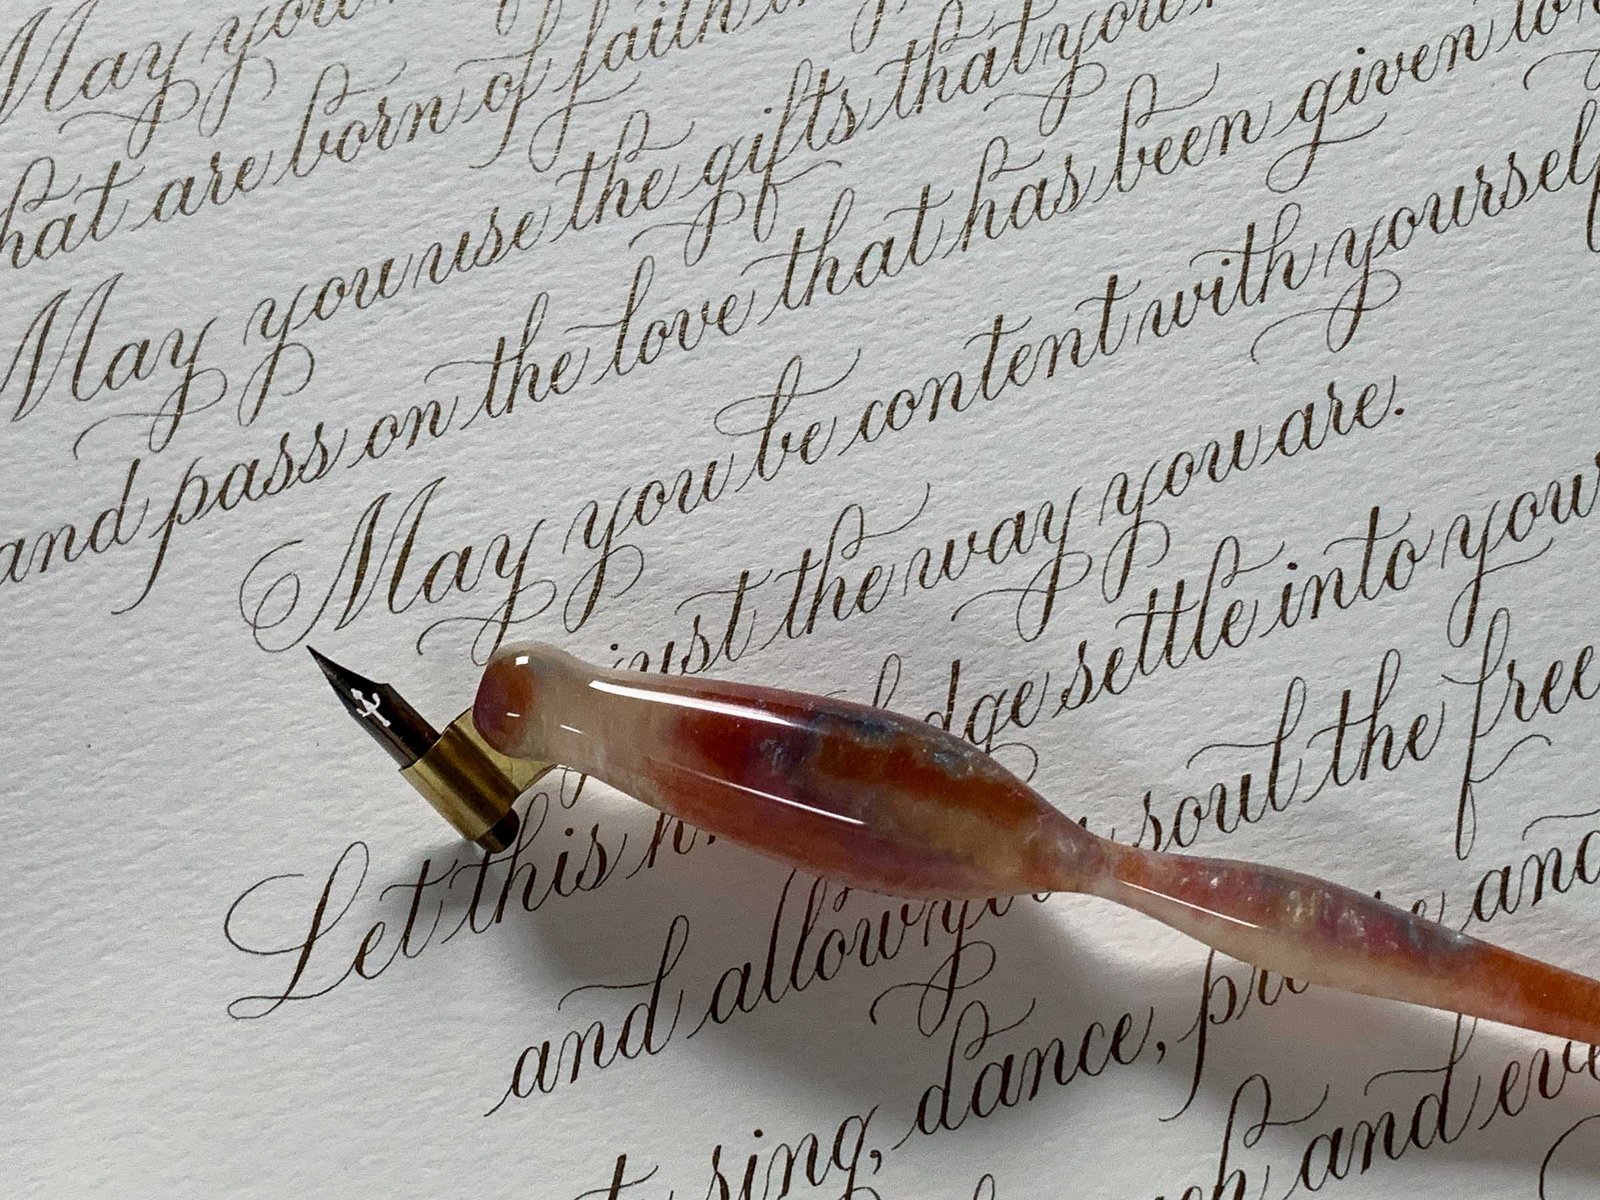 May you
that are born of faith in
May you use the gifts that you
and pass on the love that has been given to
May you be content with yourself
just the way you are.
Let this settle into your
and allow soul the free
sing, dance, and
and